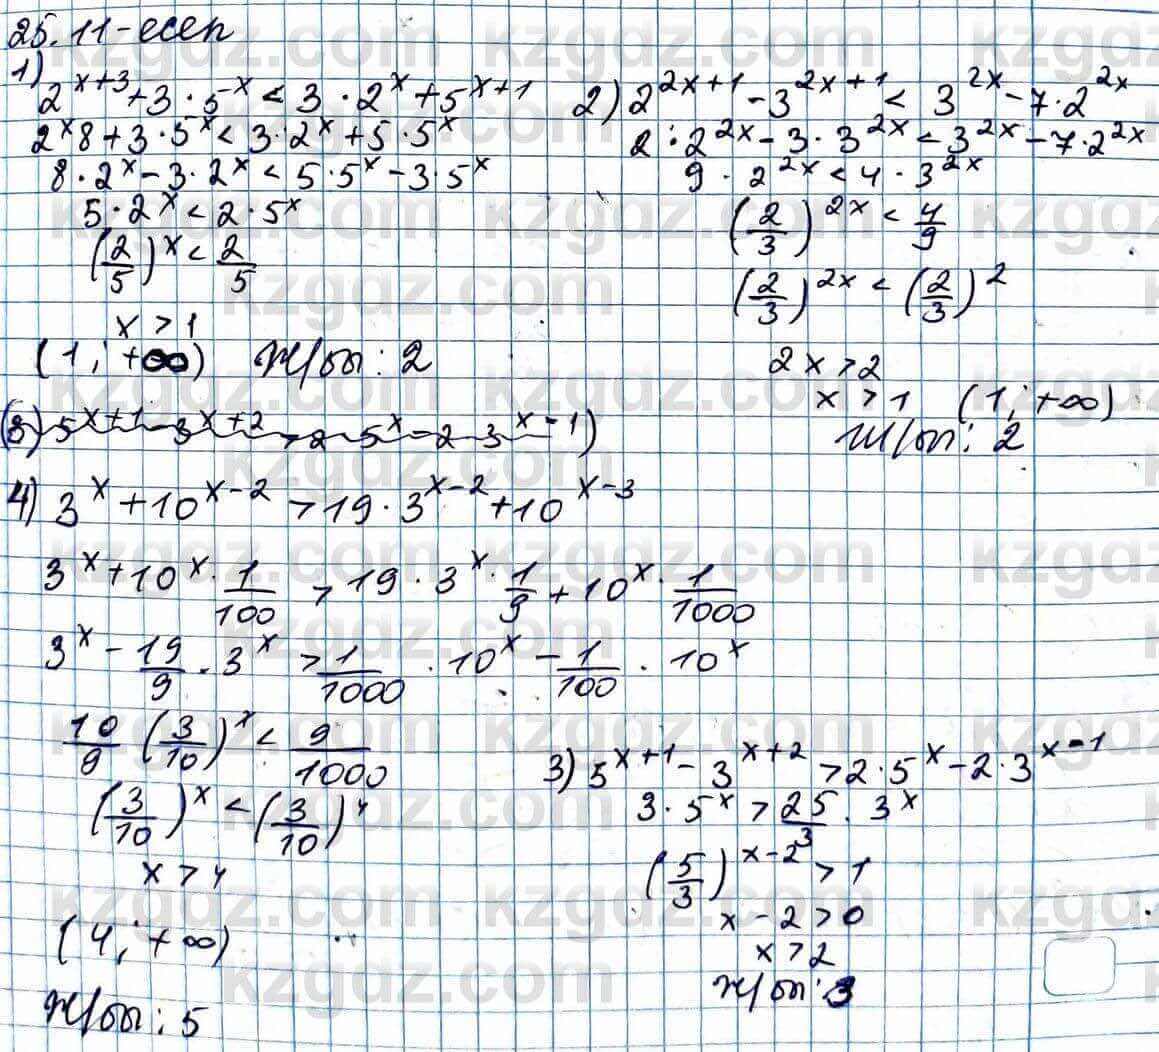 25.11-есеп
1)
2^{x+3}+3·5^{x}<3·2^{x}+5^{x+1}
2^{x}8+3·5^{x}<3·2^{x}+5·5^{x}
8·2^{x}-3·2^{x}<5·5^{x}-3·5^{x}
5·2^{x}<2·5^{x}
(2/5)^{x}<2/5
x>1
(1;+∞) Ж/бы: 2
2) 2^{2x+1}-3^{2x+1}<3^{2x}-7·2^{2x}
2·2^{2x}-3·3^{2x}<3^{2x}-7·2^{2x}
9·2^{2x}<4·3^{2x}
(2/3)^{2x}<4/9
(2/3)^{2x}<(2/3)^{2}
2x>2
x>1 (1;+∞)
Ж/бы: 2
(3) 5^{x+1}-3^{x+2}>2·5^{x}-2·3^{x-1})
4) 3^{x}+10^{x-2}>19·3^{x-2}+10^{x-3}
3^{x}+10^{x}·1/100>19·3^{x}·1/9+10^{x}·1/1000
3^{x}-19/9·3^{x}>1/1000·10^{x}-1/100·10^{x}
10/9(3/10)^{x}<9/1000
(3/10)^{x}<(3/10)^{4}
x>4
(4;+∞)
Ж/бы: 5
3) 5^{x+1}-3^{x+2}>2·5^{x}-2·3^{x-1}
3·5^{x}>25/3·3^{x}
(5/3)^{x-2}>1
x-2>0
x>2
Ж/бы: 3
kzgdz.com